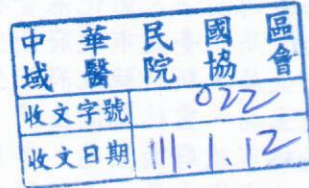 中華民國區
域醫院協會
收文字號 022
收文日期 111.1.12